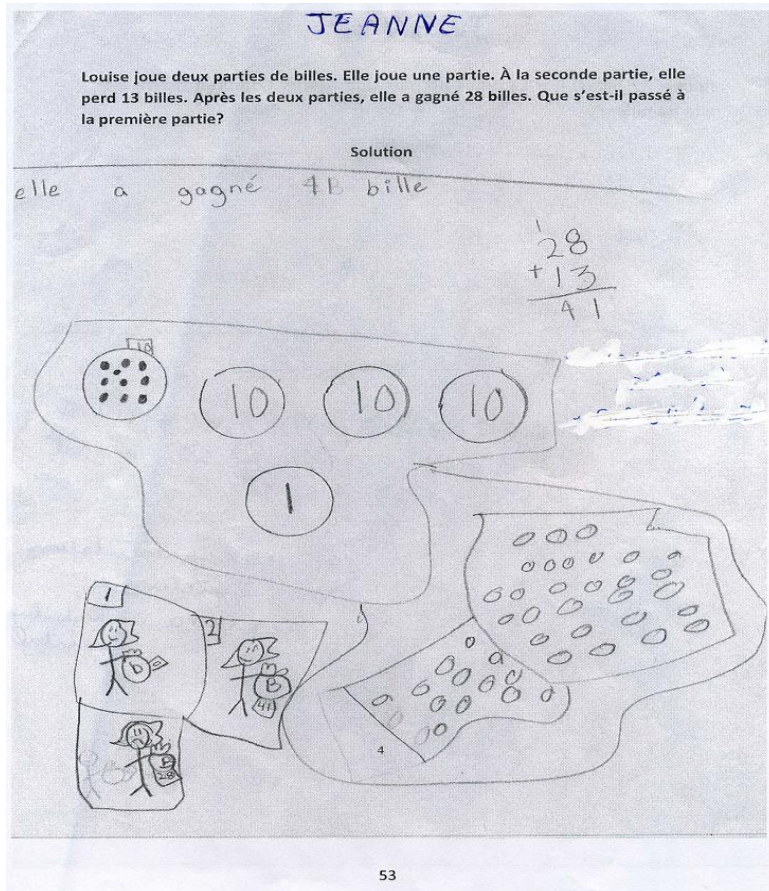 JEANNE
Louise joue deux parties de billes. Elle joue une partie. À la seconde partie, elle
perd 13 billes. Après les deux parties, elle a gagné 28 billes. Que s'est-il passé à
la première partie?
Solution
elle a gagné bille
1
28
+13
41
10
10 10 10
1
1
2
B
41
B
28
4
53